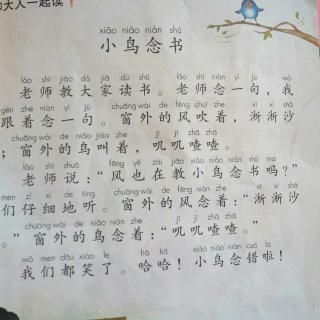 和大人一起读
xiǎo niǎo niàn shū
小鸟念书
lǎo shī jiāo dà jiā dú shū lǎo shī niàn yí jù wǒ
老师教大家读书。老师念一句，我
gēn zhe niàn yí jù chuāng wài de fēng chuī zhe xī xī shā
跟着念一句。窗外的风吹着，淅淅沙
chuāng wài de niǎo jiào zhe jī jī zhā zhā
；窗外的鸟叫着，叽叽喳喳。
lǎo shī shuō fēng yě zài jiāo xiǎo niǎo niàn shū ma
老师说：“风也在教小鸟念书吗？”
men zǐ xì de tīng chuāng wài de fēng niàn zhe xī xī shā
们仔细地听。窗外的风念着：“淅淅沙
chuāng wài de niǎo niàn zhe jī jī zhā zhā
。”窗外的鸟念着：“叽叽喳喳。”
wǒ men dōu xiào le hā hā xiǎo niǎo niàn cuò la
我们都笑了。哈哈！小鸟念错啦！